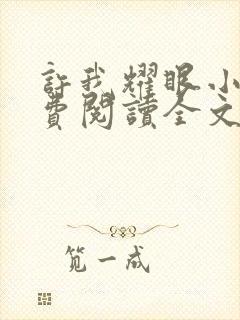 許我耀眼小
費閱讀全文
笕一成